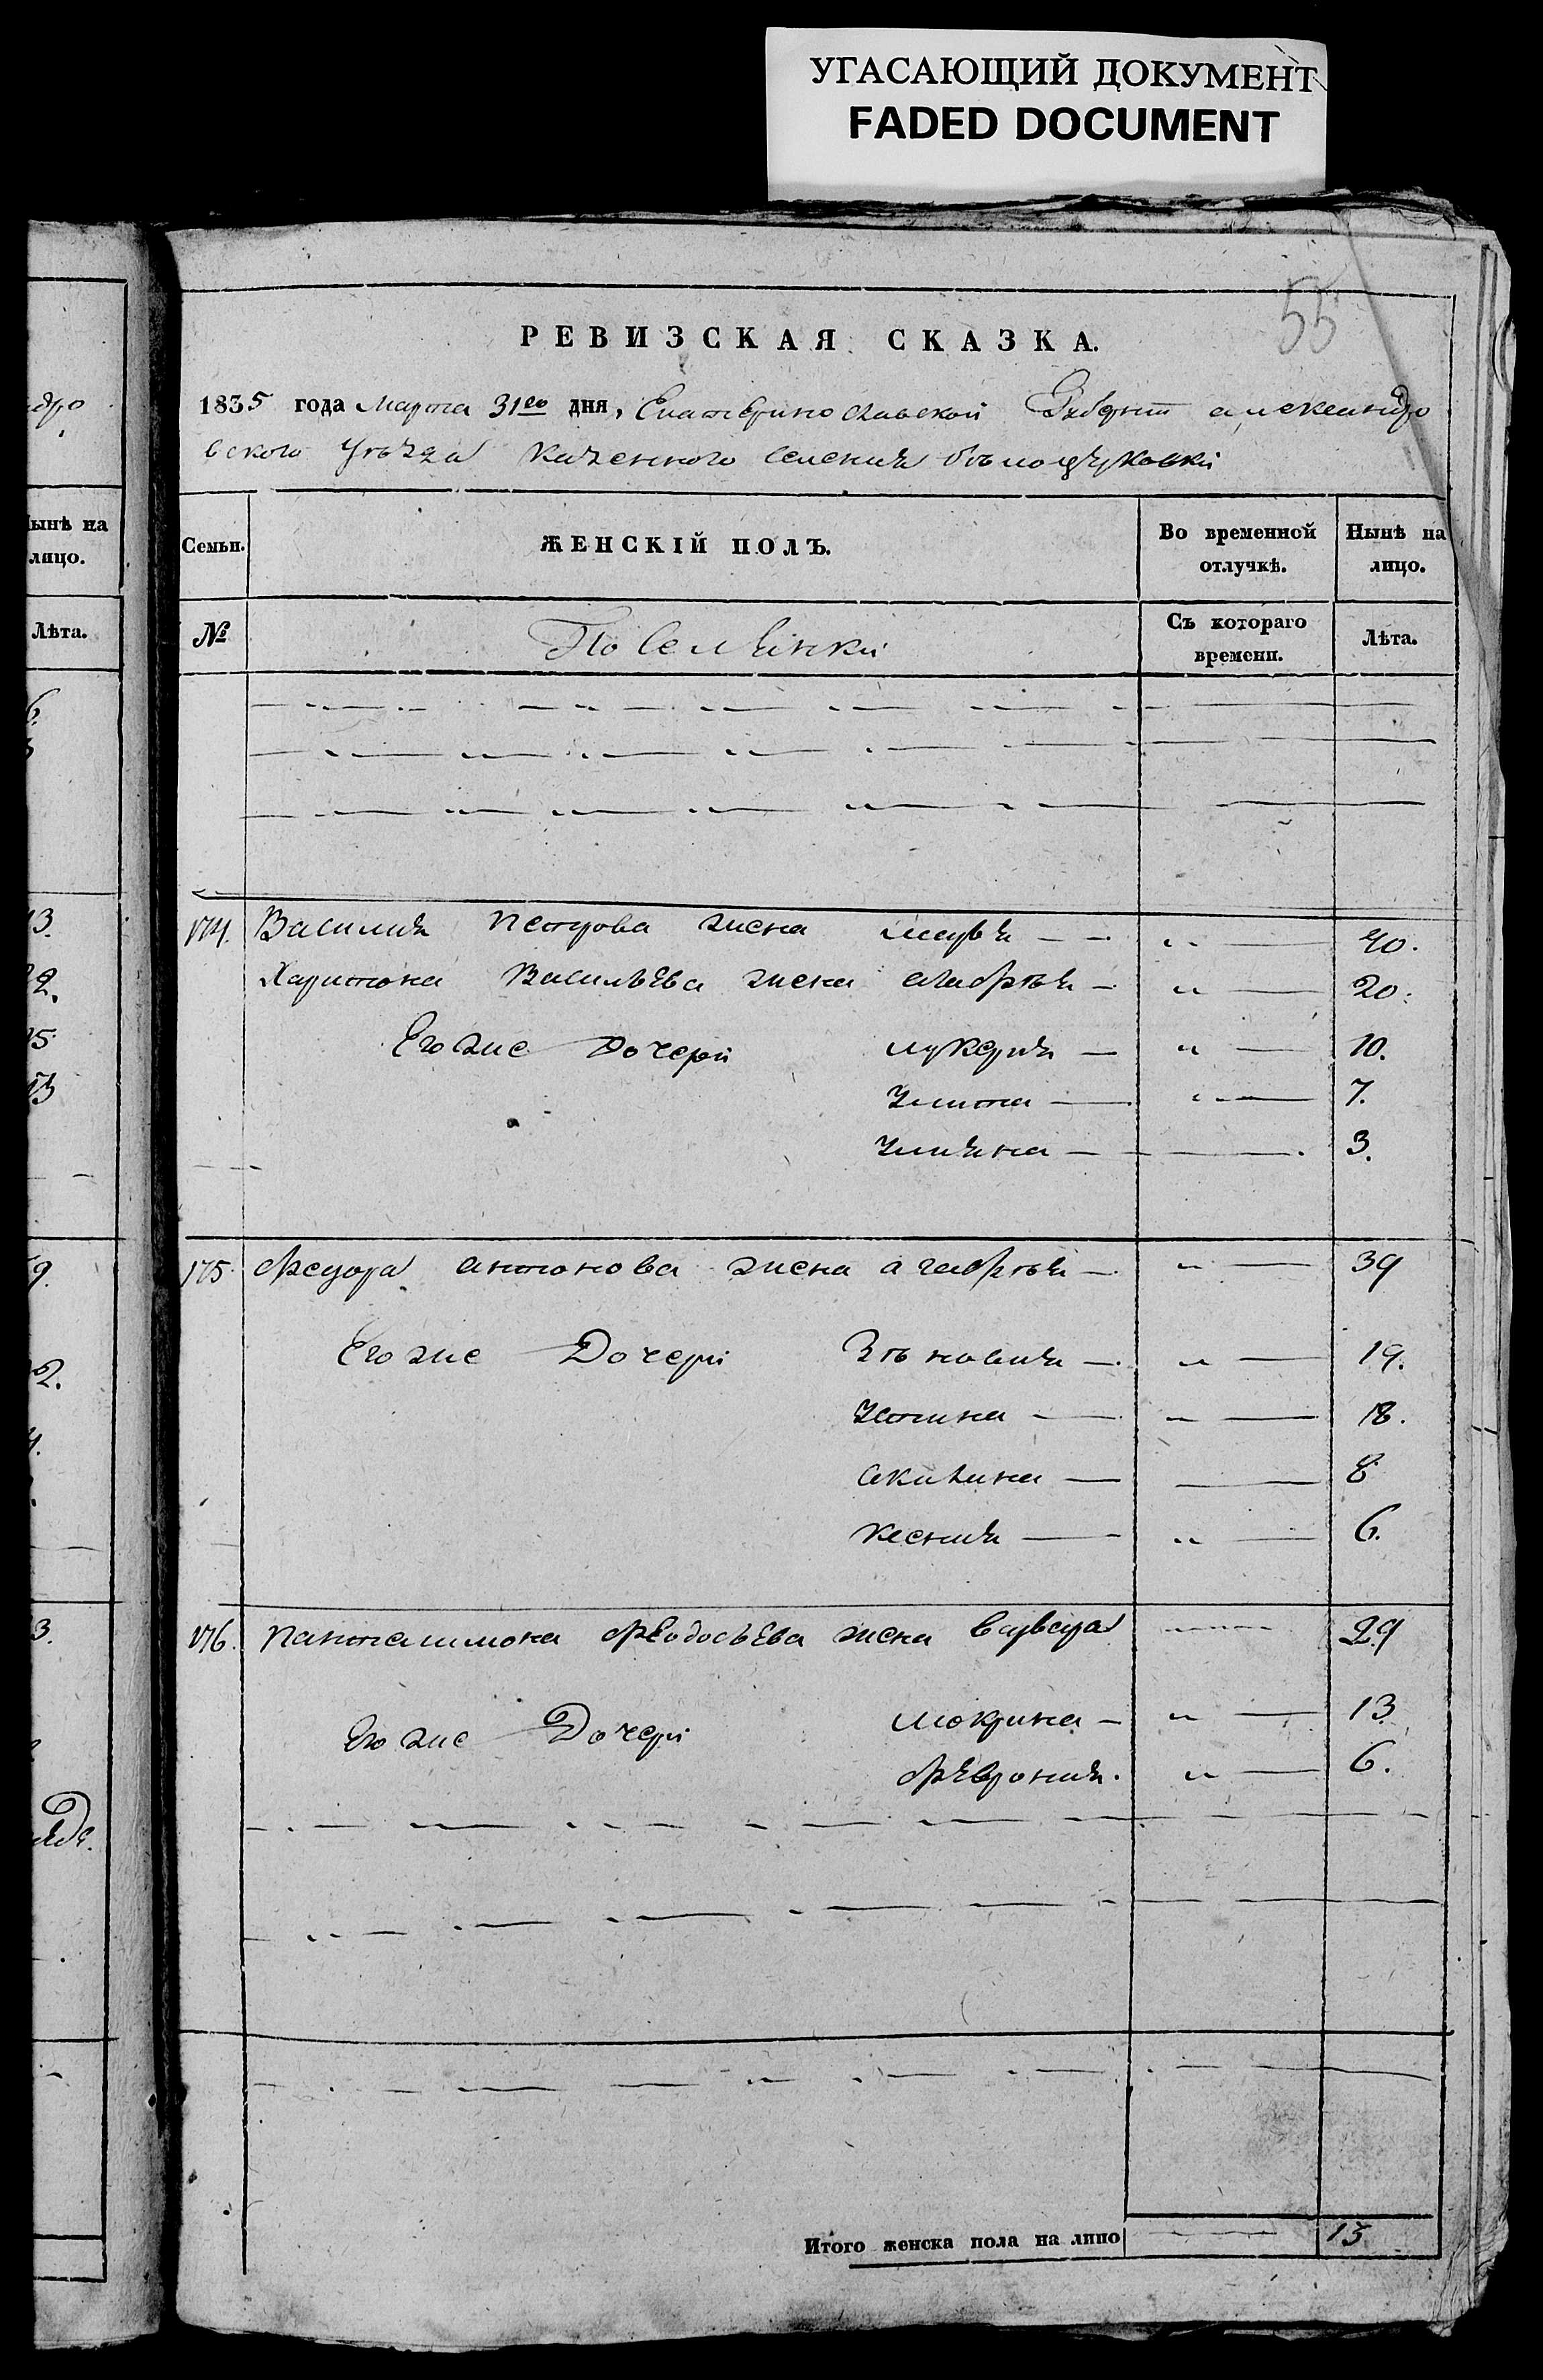 УГАСАЮЩИЙ ДОКУМЕНТ
FADED DOCUMENT
55
РЕВИЗСКАЯ СКАЗКА.
1835 года Марта 31го дня, Екатеринославской Губерніи александро
вского уѣзда казенного селенія бѣлоцерковки
Семьи. ЖЕНСКІЙ ПОЛЪ. Во временной отлучкѣ. Нынѣ на лицо.
№ Поселянки Съ котораго времени. Лѣта.
174. Василия петрова жена марья 40.
Харитона Васильева жена агафья 20.
Его же дочери лукерия 10.
улита 7.
улияна 3.
175. федора антонова жена агафья 39
Его же Дочери Зѣновия 19.
устина 18.
акилина 8
ксения 6.
176. панталимона феодосьева жена варвара 29
Его же Дочери мокрина 13
феврония. 6.
Итого женска пола на лицо 13
ынѣ на
лицо.
Лѣта.